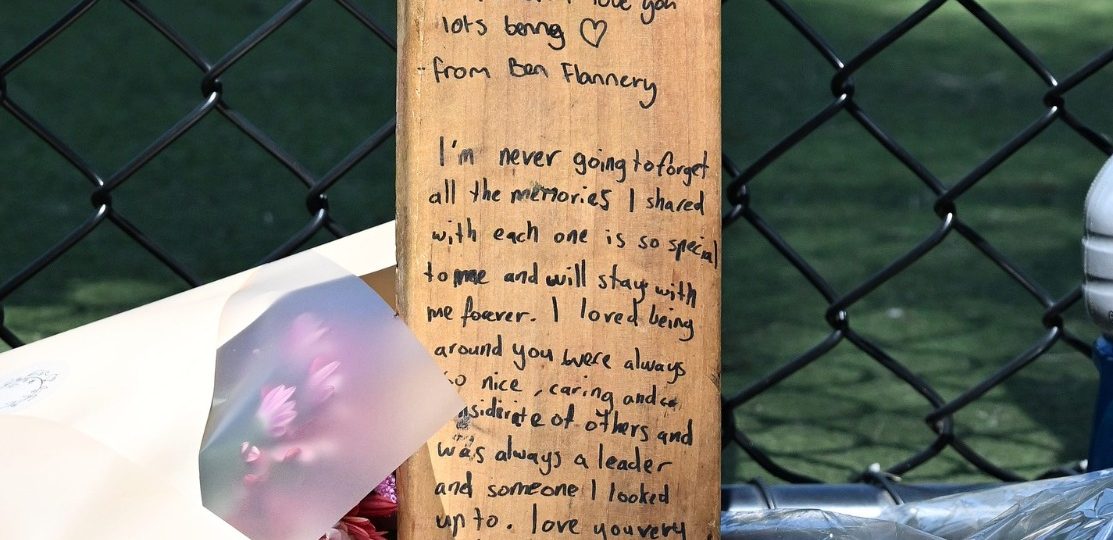 love you
lots benng ♡
- from Ben Flannery
I'm never going to forget
all the memories I shared
with each one is so special
to me and will stay with
me forever. I loved being
around you were always
so nice, caring and co
nsiderite of others and
was always a leader
and someone I looked
up to. love you very